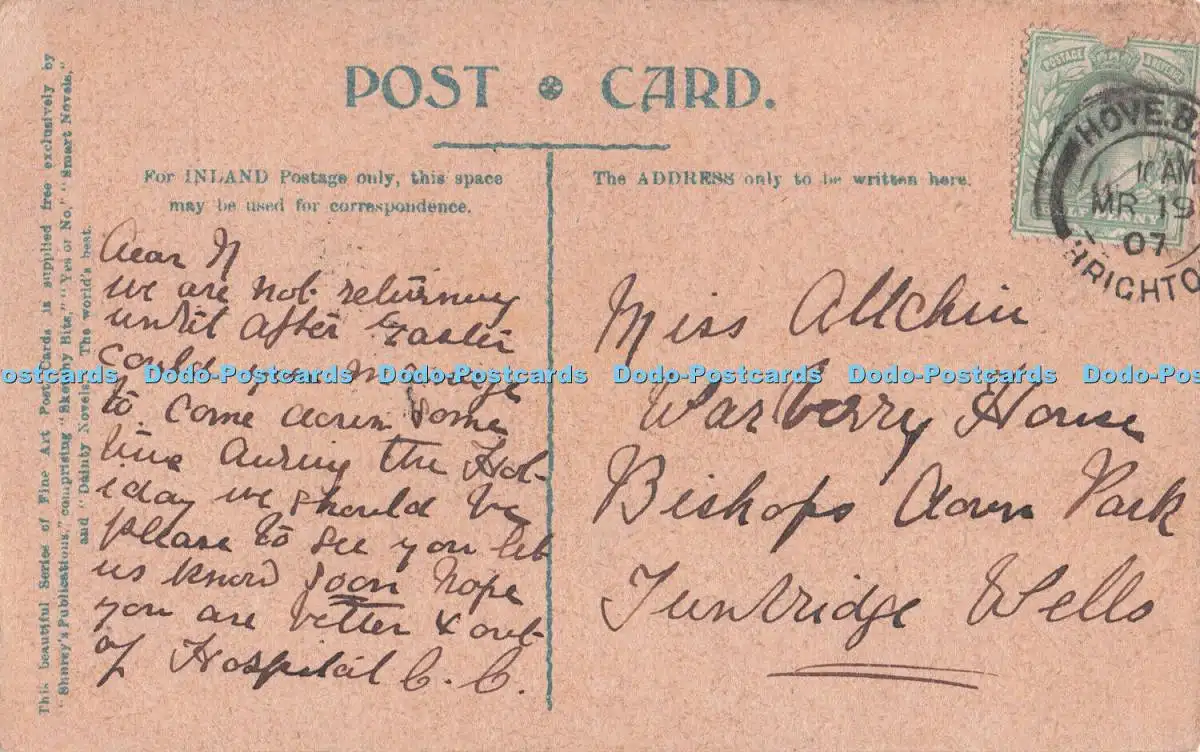 POST CARD.
For INLAND Postage only, this space
may be used for correspondence.
The ADDRESS only to be written here.
This beautiful Series of Fine Art Post Cards is supplied free exclusively by
"Shurey's Publications," comprising "Sketchy Bits," "Yes or No," "Smart Novels,"
and "Dainty Novels." The world's best.
POSTAGE & REVENUE
HALF PENNY
HOVE. B.
10 AM
MR 19
07
BRIGHTO
Dear N
we are not returning
until after Easter
could you manage
to come down some
time during the Hol-
iday we should be
please to see you let
us know soon hope
you are better & out
of Hospital C. C.
Miss Allchin
Warberry House
Bishops down Park
Tunbridge Wells
ostcards Dodo-Postcards Dodo-Postcards Dodo-Postcards Dodo-Postcards Dodo-Pos